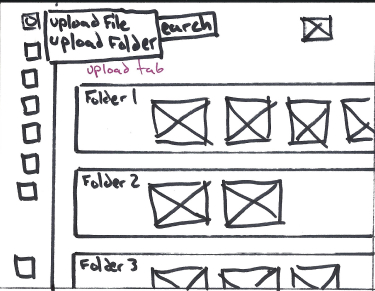 upload File
upload Folder
earch
upload tab
Folder 1
Folder 2
Folder 3